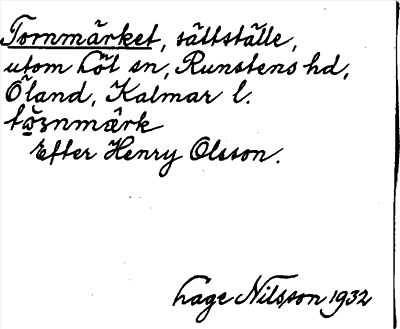 Tornmärket, sältställe,
utom Löt sn, Runstens hd,
Öland, Kalmar l.
Efter Henry Olsson.
Lage Nilsson 1932